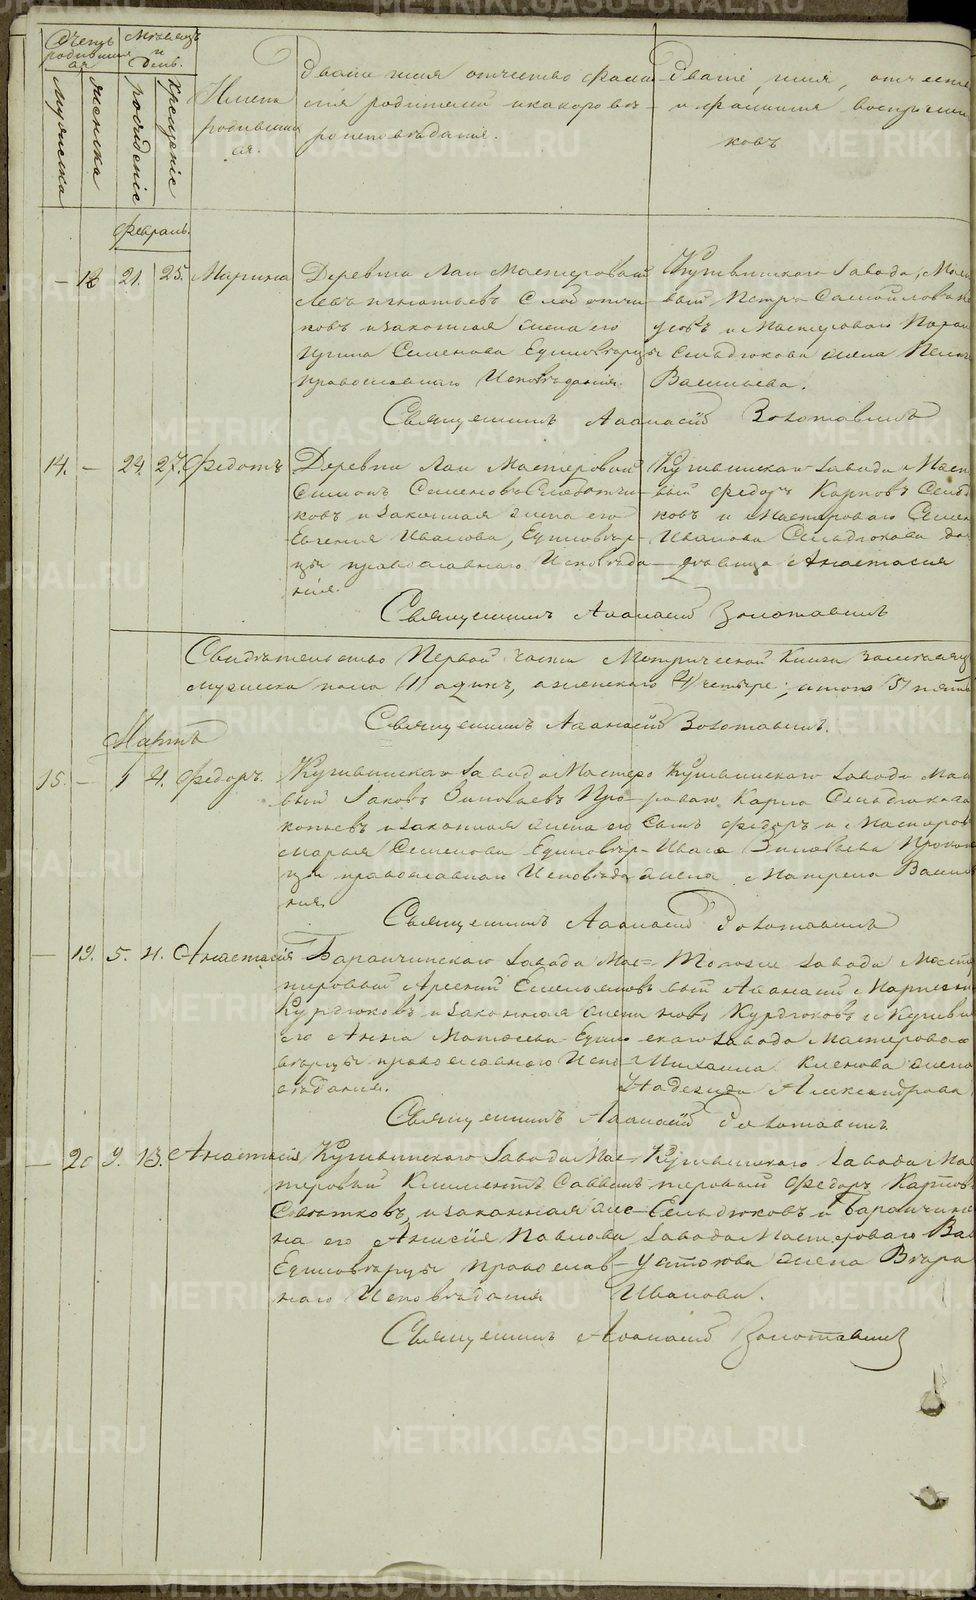 Счетъ родившихся
Мѣсяцъ и День.
мужеска
женска
рожденіе
Крещеніе
Имена родившихся.
Званіе имя отчество фамилія родителей и какого вѣроисповѣданія.
Званіе, имя, отчество и фамилія воспріемниковъ
Февраль.
21. 25. Марина
Деревни Лаи Мастеровой
ковъ и законная жена его
Ирина Семенова Единовѣрцы
православнаго Исповѣданія.
Кушвинскаго Завода, Мас
вый Петръ
и Мастероваго
жена
Васильева.
Священникъ Аѳанасій Золотавинъ
14. — 24 27. Федотъ
Деревни Лаи Мастеровой
Симонъ Семеновъ Слободчи
ковъ и законная жена его
Евгенія Иванова, Единовѣр-
цы православнаго Исповѣда
нія.
Кушвинскаго Завода Масте
вый Федоръ Карповъ Сельд
ковъ и Мастероваго Семен
Иванова Сельдюкова до
дѣвица Анастасия
Священникъ Аѳанасій Золотавинъ
Свидѣтельство Первой части Метрической Книги
мужеска пола /1/ одинъ, а женскаго /4/ четыре; итого /5/ пять
Священникъ Аѳанасій Золотавинъ.
Мартъ
15. — 1 4. Федоръ.
Кушвинскаго Завода Мастеро
вый Яковъ Зиновьевъ Про
копьевъ и законная жена его
Марья Семенова Единовѣр-
цы православнаго Исповѣда
нія.
Кушвинскаго Завода Мас
роваго Карпа Сельдюкова
Сынъ Федоръ и Мастеров
Ивана Зиновьева Прокоп
жена Матрена Васил
Священникъ Аѳанасій Золотавинъ
— 19. 5. 4. Анастасія
Баранчинскаго Завода Мас-
теровый Арсений Емельяновъ
Курдюковъ и законная жена
его Анна Матвеева Един
вѣрцы православнаго Испо-
вѣданія.
Завода Масте
вый Аѳанасий
новъ Курдюковъ и Кушви
скаго Завода Мастероваго
Михаила жена
Надежда Александрова
Священникъ Аѳанасій Золотавинъ
— 20 9. 13. Анастасія
Кушвинскаго Завода Мас-
теровый Климентъ Саввинъ
и законная же-
на его Анисія Павлова
Единовѣрцы православ-
наго Исповѣданія
Кушвинскаго Завода Мас
теровый Федоръ Карповъ
Сельдюковъ и Баранчинс
Завода Мастероваго Вас
Устюгова жена Вѣра
Иванова.
Священникъ Аѳанасій Золотавинъ
METRIKI.GASO-URAL.RU